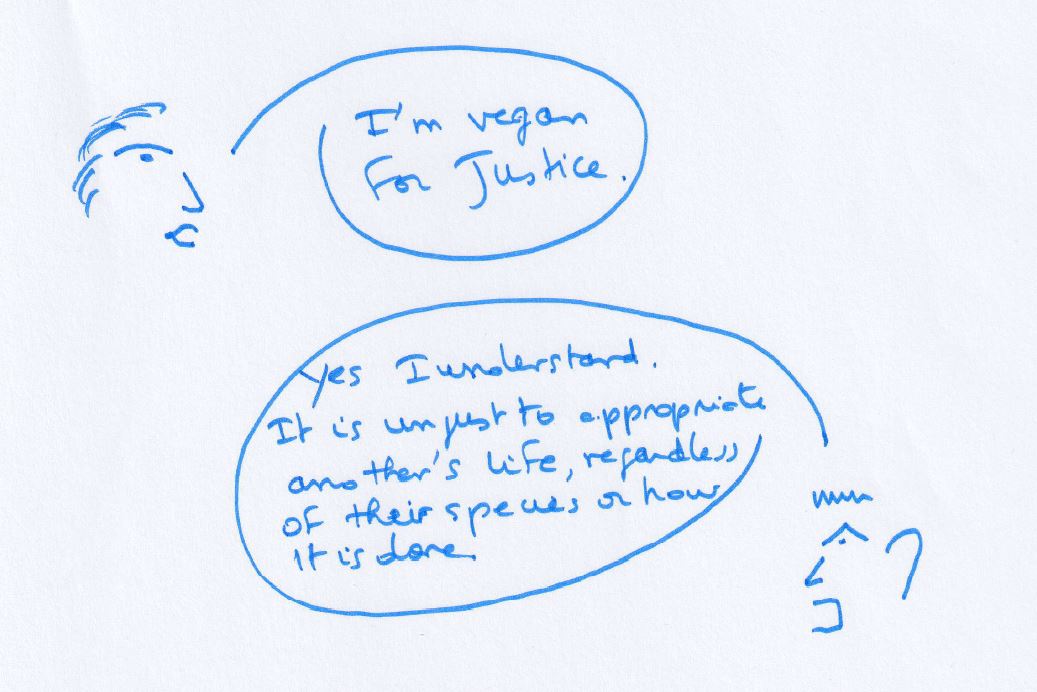 I'm vegan
For Justice.
Yes I understand.
It is unjust to appropriate
another's life, regardless
of their species or how
it is done.